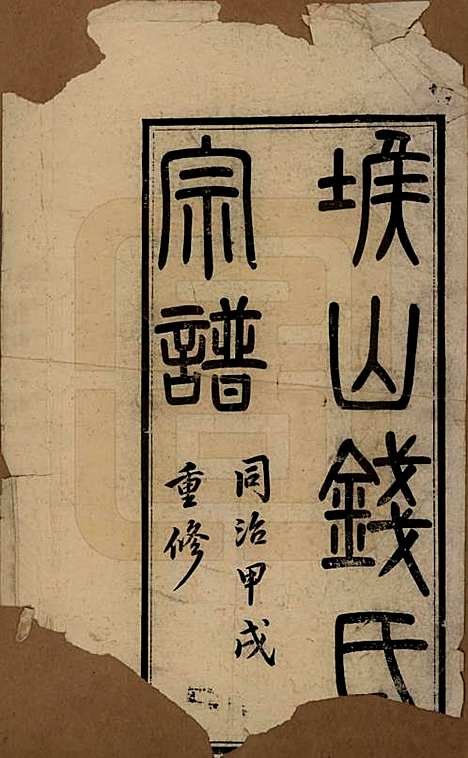 堠山錢氏
宗譜
同治甲戌
重修